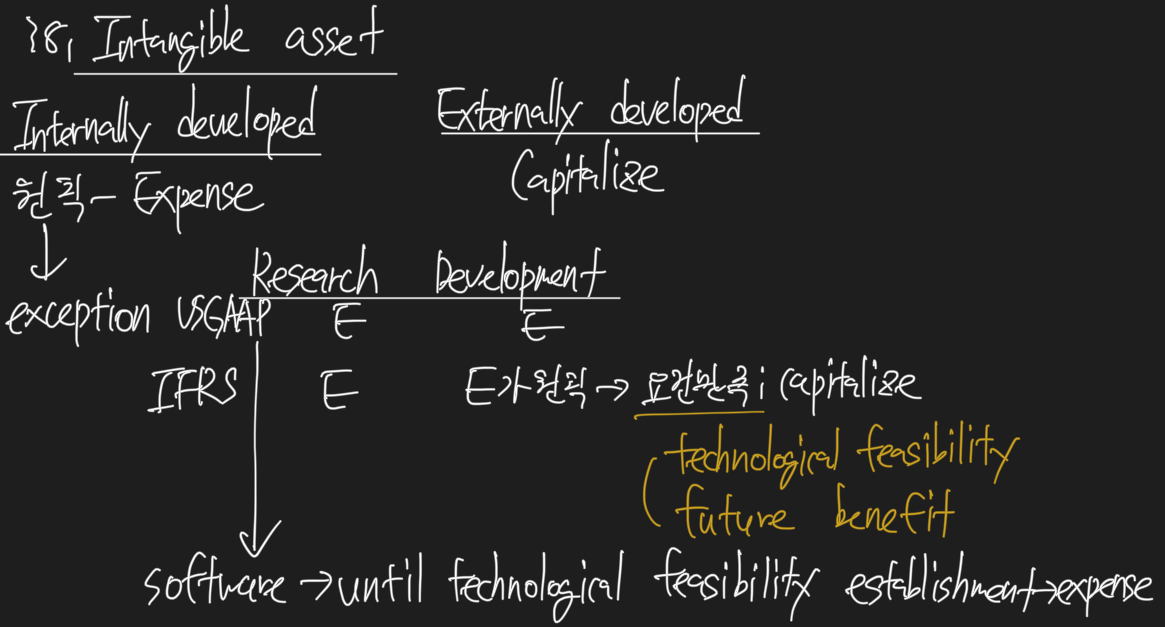 18, Intangible asset
Internally developed
Externally developed
원칙 - Expense
Capitalize
Research Development
exception USGAAP E E
IFRS E E가 원칙 → 요건만족; capitalize
technological feasibility
future benefit
software → until technological feasibility establishment → expense